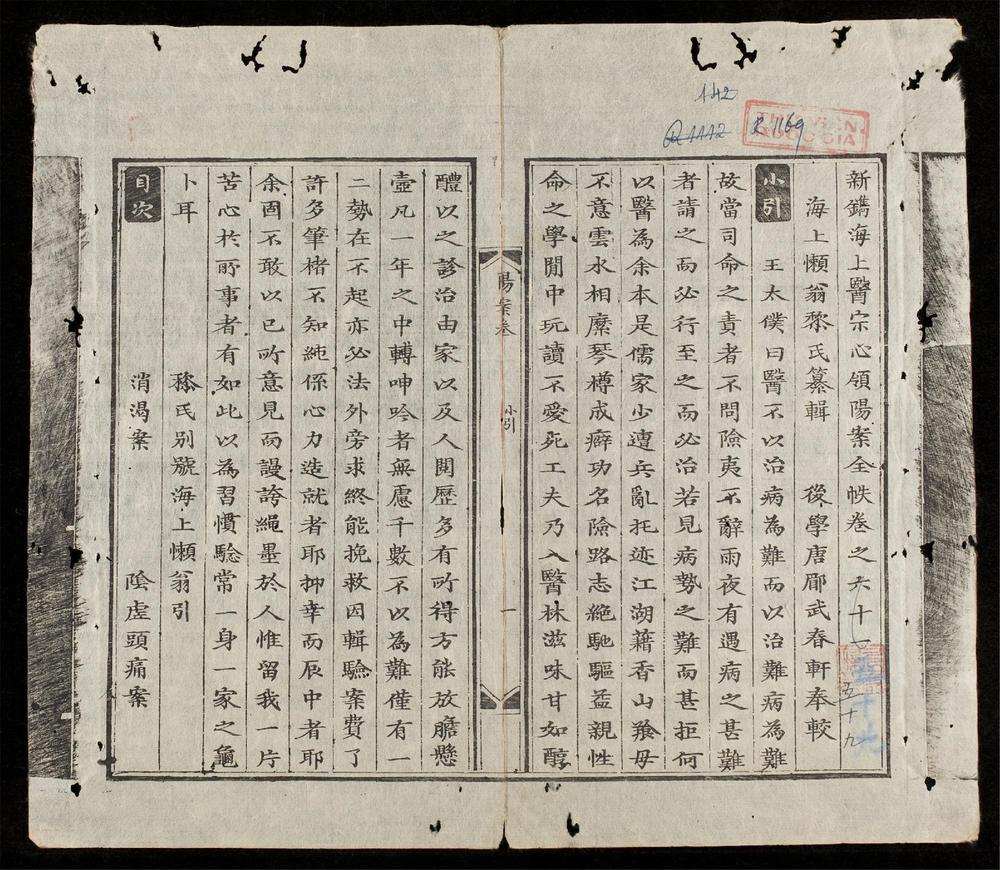 142
R1112
R1169
THƯ VIỆN
QUỐC GIA
新鐫海上醫宗心領陽案全帙卷之六十一
五十九
五十九
海上懶翁黎氏纂輯 後學唐郿武春軒奉較
小引 王太僕曰醫不以治病為難而以治難病為難
故當司命之責者不問險夷不辭雨夜有遇病之甚難
者請之而必行至之而必治若見病勢之難而甚拒何
以醫為余本是儒家少遭兵亂托迹江湖籍香山飱母
不意雲水相縻琴樽成癖功名險路志絕馳驅益親性
命之學閒中玩讀不愛死工夫乃入醫林滋味甘如醇
陽案卷 小引 一
醴以之診治由家以及人閱歷多有所得方能放膽懸
壺凡一年之中轉呻吟者無慮千數不以為難僅有一
二勢在不起亦必法外旁求終能挽救因輯驗案費了
許多筆楮不知純係心力造就者耶抑幸而辰中者耶
余固不敢以已所意見而謾誇繩墨於人惟留我一片
苦心於所事者有如此以為習慣驗常一身一家之龜
卜耳 𥟖氏別號海上懶翁引
目次 消渴案 陰虛頭痛案